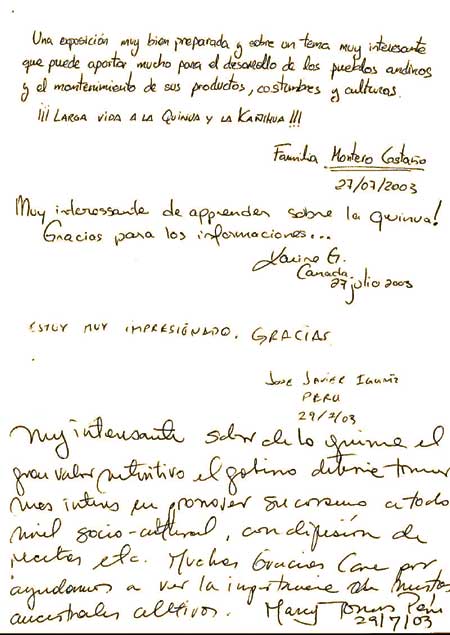 Una exposición muy bien preparada y sobre un tema muy interesante
que puede aportar mucho para el desarollo de los pueblos andinos
y el mantenimiento de sus productos, costumbres y culturas.
¡¡¡ LARGA VIDA A LA QUINUA Y LA KAÑIHUA !!!
Familia Montero Castaño
27/07/2003
Muy interessante de apprender sobre la quinua!
Gracias para los informaciones...
G.
Canada
27 julio 2003
ESTUY MUY IMPRESIONADO. GRACIAS
JOSE JAVIER
PERU
29/7/03
Muy interesante saber de lo quinua el
gran valor nutritivo el gobierno debería tomar
mas interes en promover su consumo a todo
nivel socio-cultural, con difusión de
recetas etc. Muchas Gracias por
ayudarnos a ver la importancia de nuestros
ancestrales cultivos. Mary Torres Perú
29/7/03